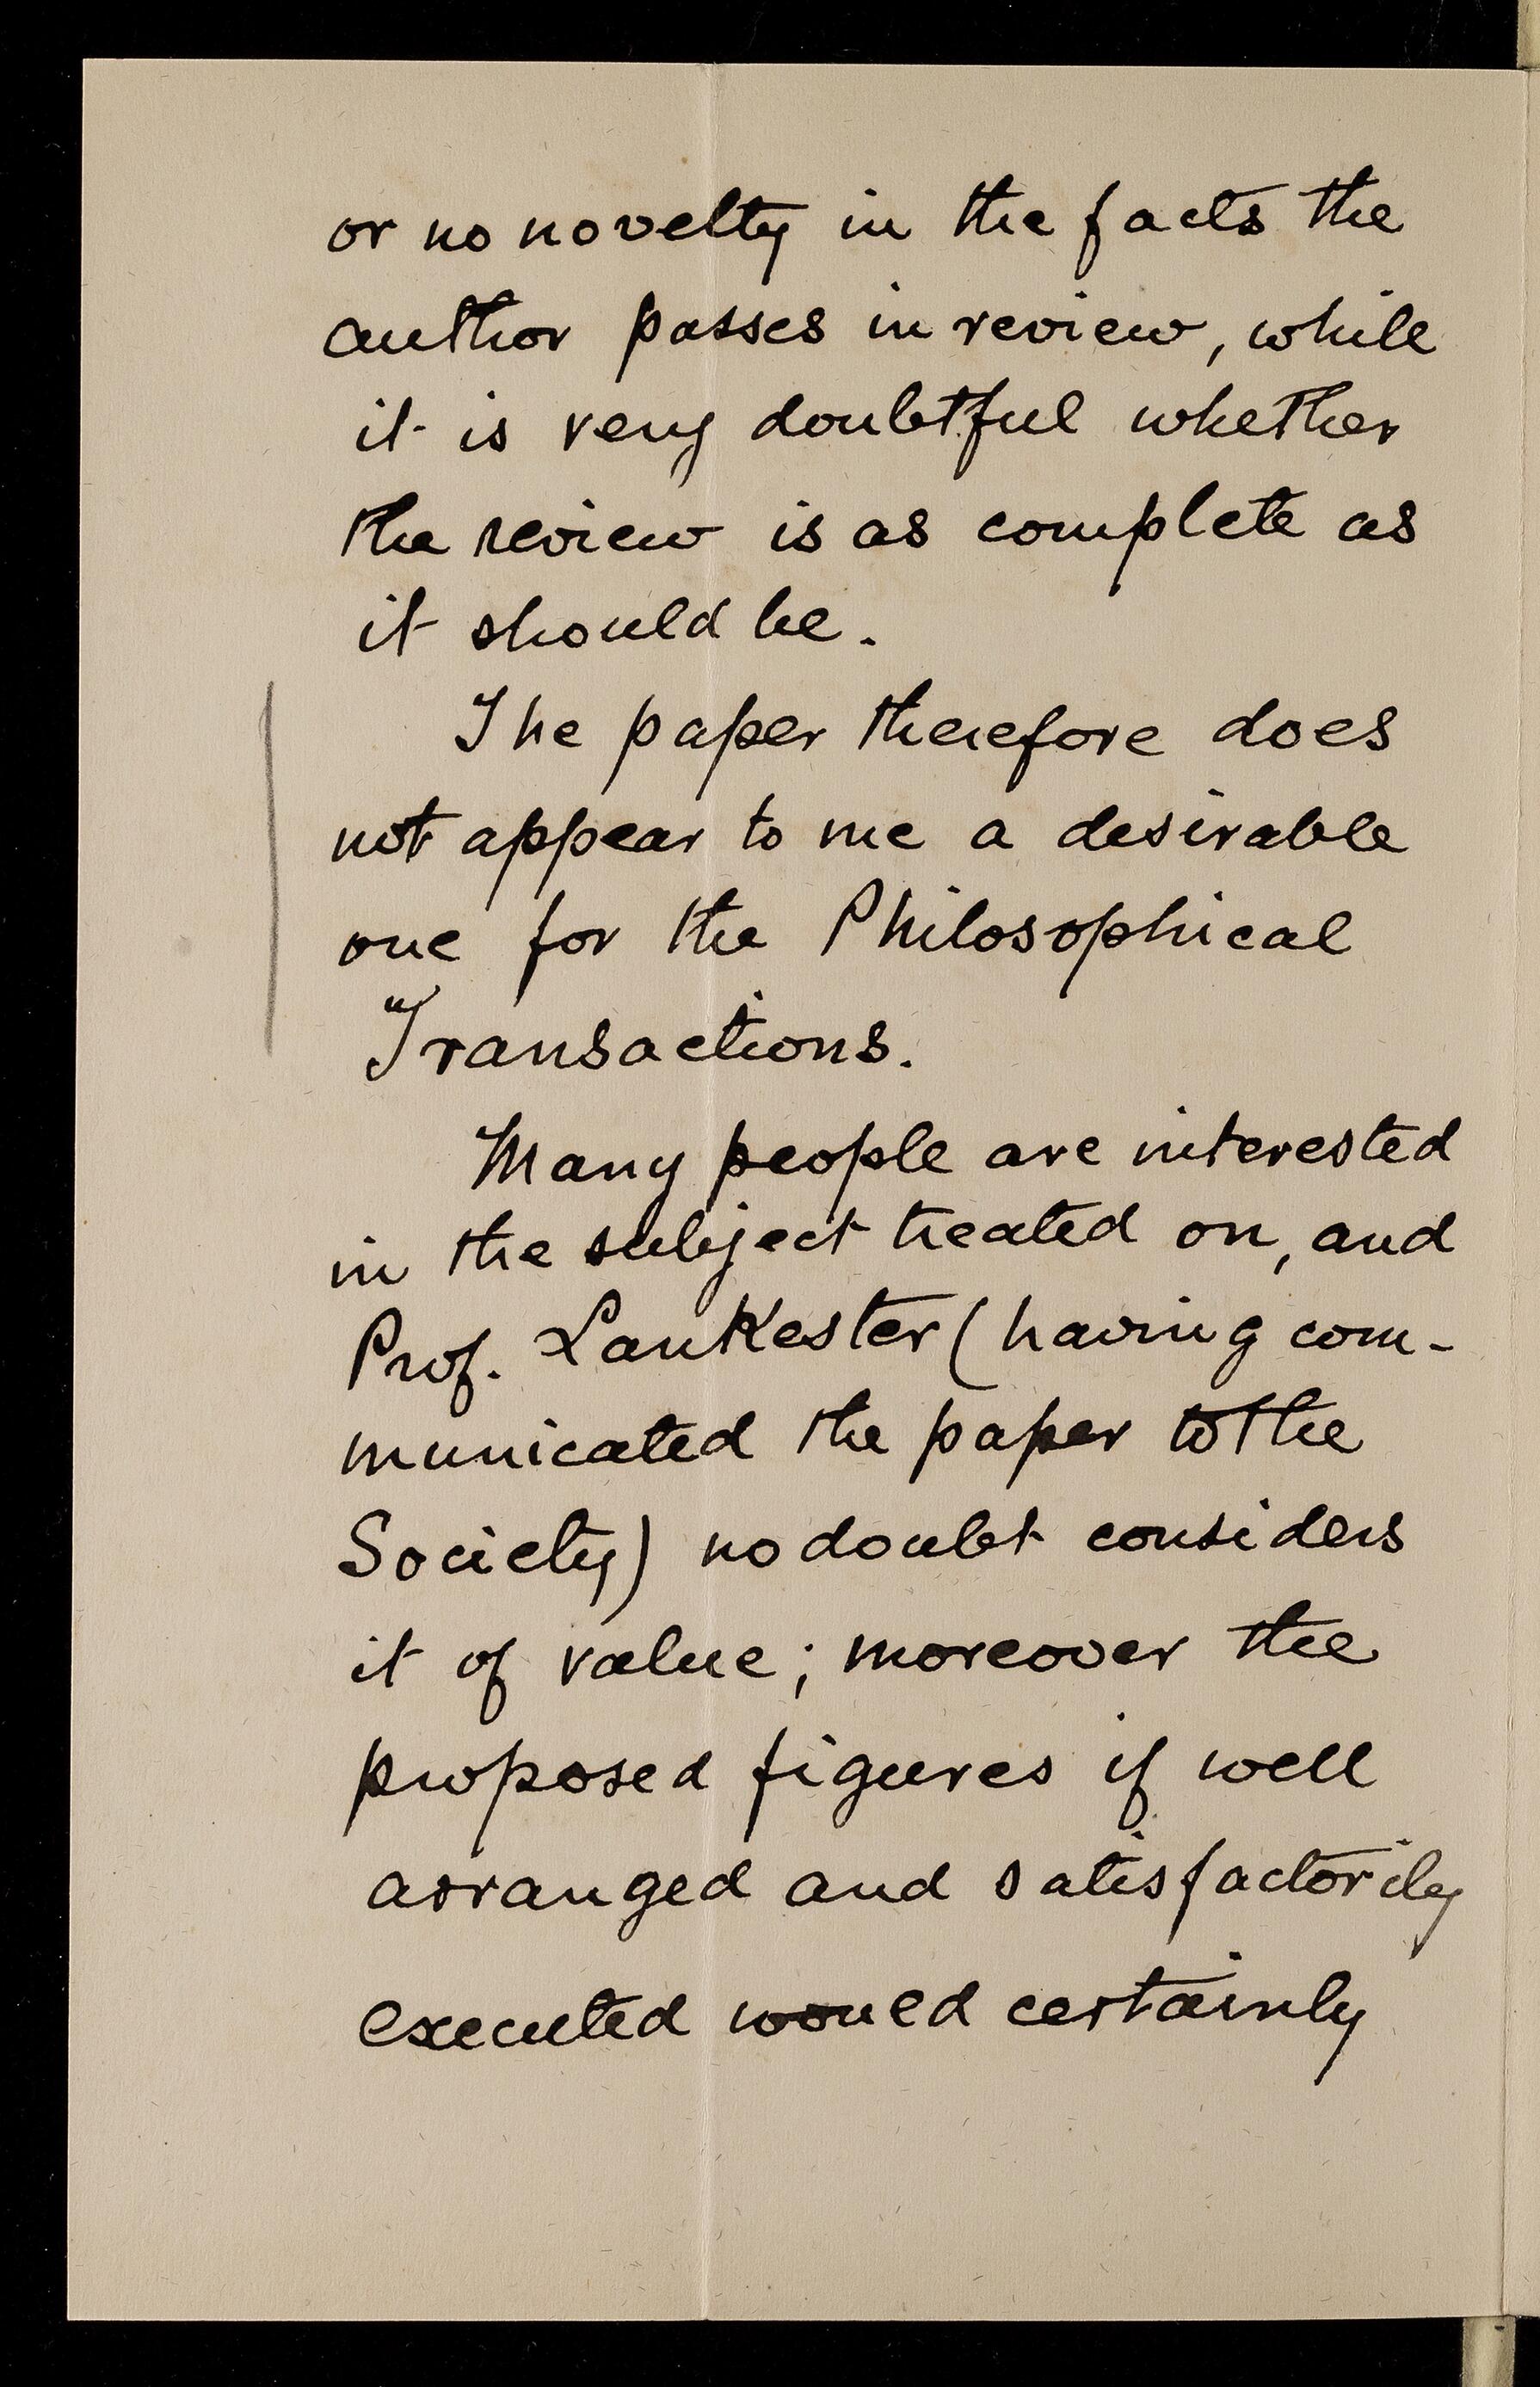 or no novelty in the facts the
author passes in review, while
it is very doubtful whether
the review is as complete as
it should be.
The paper therefore does
not appear to me a desirable
one for the Philosophical
Transactions.
Many people are interested
in the subject treated on, and
Prof. Lankester (having com-
municated the paper to the
Society) no doubt considers
it of value; moreover the
proposed figures if well
arranged and satisfactorily
executed would certainly